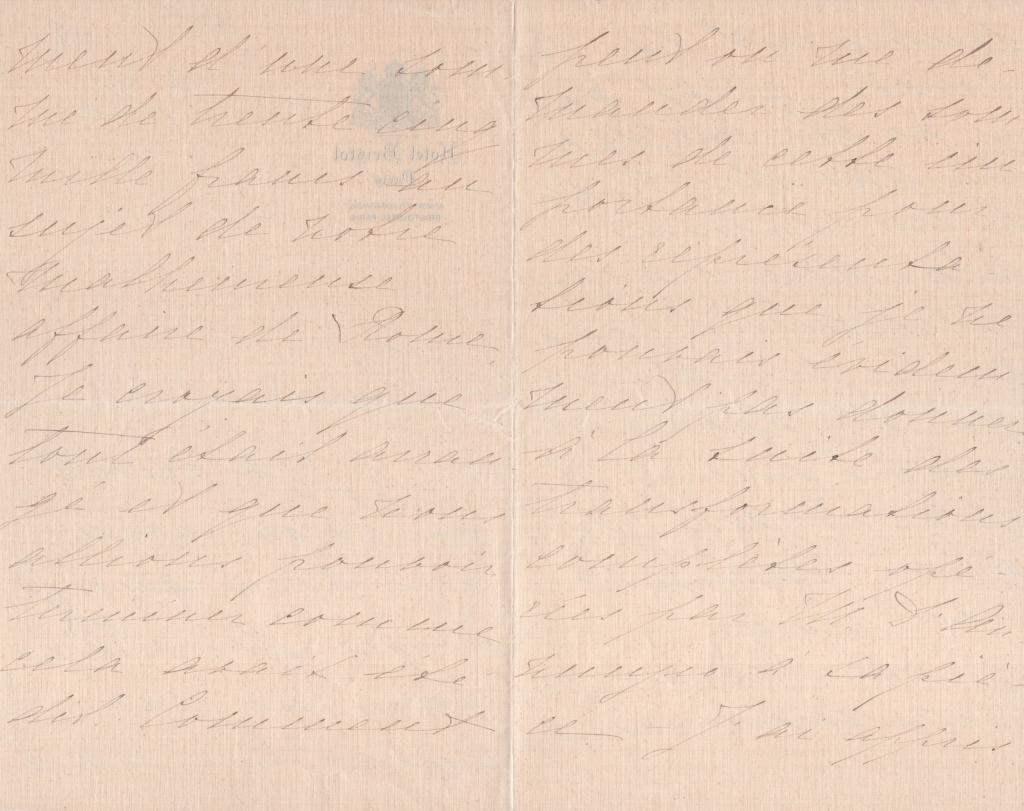 ment d'une som
me de trente cinq
mille francs au
sujet de notre
malheureuse
affaire de Rome.
Je croyais que
tout était arran
gé et que nous
allions pouvoir
terminer comme
cela avait été
dit. Comment
peut on me de-
mander des som
mes de cette im
portance pour
des représenta
tions que je ne
pouvais évidem
ment pas donner
à la suite des
transformations
complètes opé-
rées par M. D'An
nunzio à sa piè-
ce - J'ai appris
Hotel Bristol
Paris